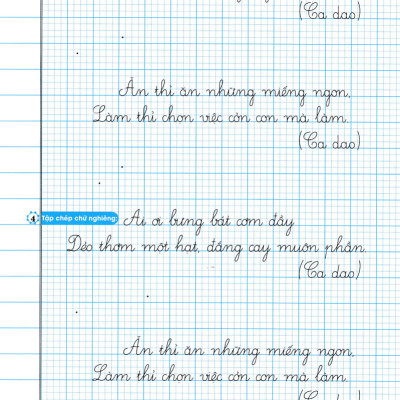 (Ca dao)
Ăn thì ăn những miếng ngon,
Làm thì chọn việc cỏn con mà làm.
(Ca dao)
4 Tập chép chữ nghiêng:
Ai ơi bưng bát cơm đầy
Dẻo thơm một hạt, đắng cay muôn phần.
(Ca dao)
Ăn thì ăn những miếng ngon,
Làm thì chọn việc cỏn con mà làm.